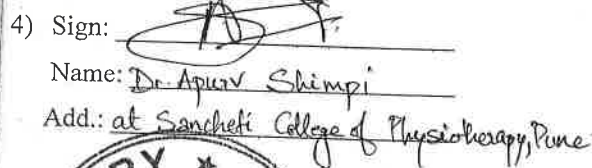 4) Sign:
Name: Dr. Apurv Shimpi
Add.: at Sancheti College of Physiotherapy, Pune
RY ★